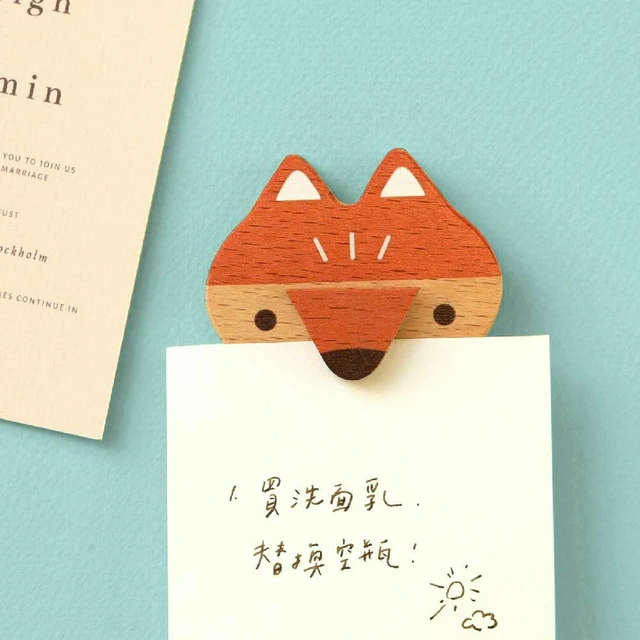 min
YOU TO JOIN US
MARRIAGE
ockholm
ES CONTINUE IN
1. 買洗面乳.
替換空瓶!